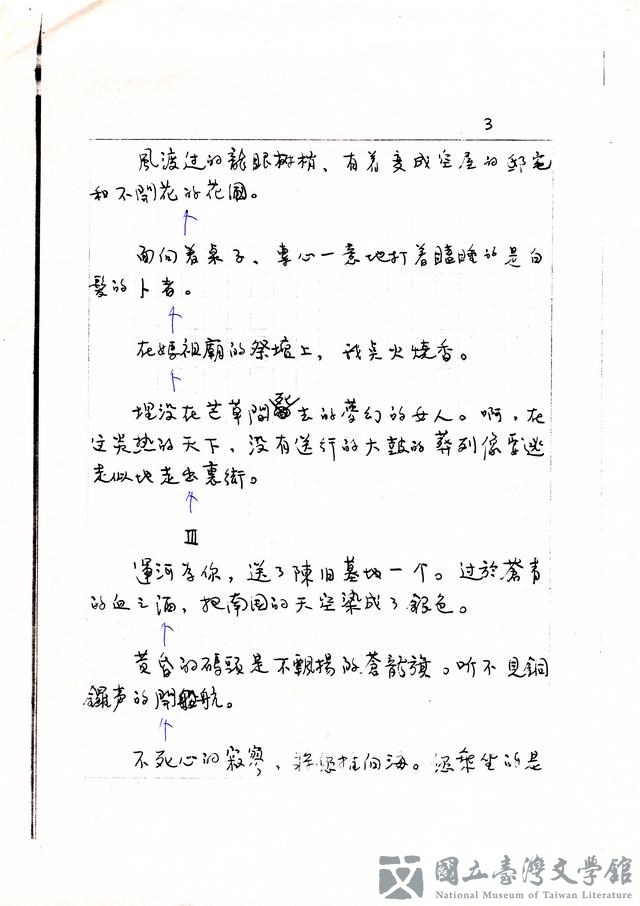 3
風渡过的龍眼树梢、有着变成空屋的邸宅
和不開花的花園。
面向着桌子、専心一意地打着瞌睡的是白
髮的卜者。
在媽祖廟的祭壇上，我点火燒香。
埋没在芒草間 去的夢幻的女人。啊，在
这炎热的天下，没有送行的大鼓的葬列像要逃
走似地走出裏街。
III
運河为你，送了陳旧墓地一个。过於蒼青
的血之酒，把南国的天空染成了銀色。
黄昏的碼頭是不飄揚的蒼龍旗。听不見銅
鑼声的開船航。
不死心的寂寥、将您推向海。您乘坐的是
國立臺灣文學館
National Museum of Taiwan Literature